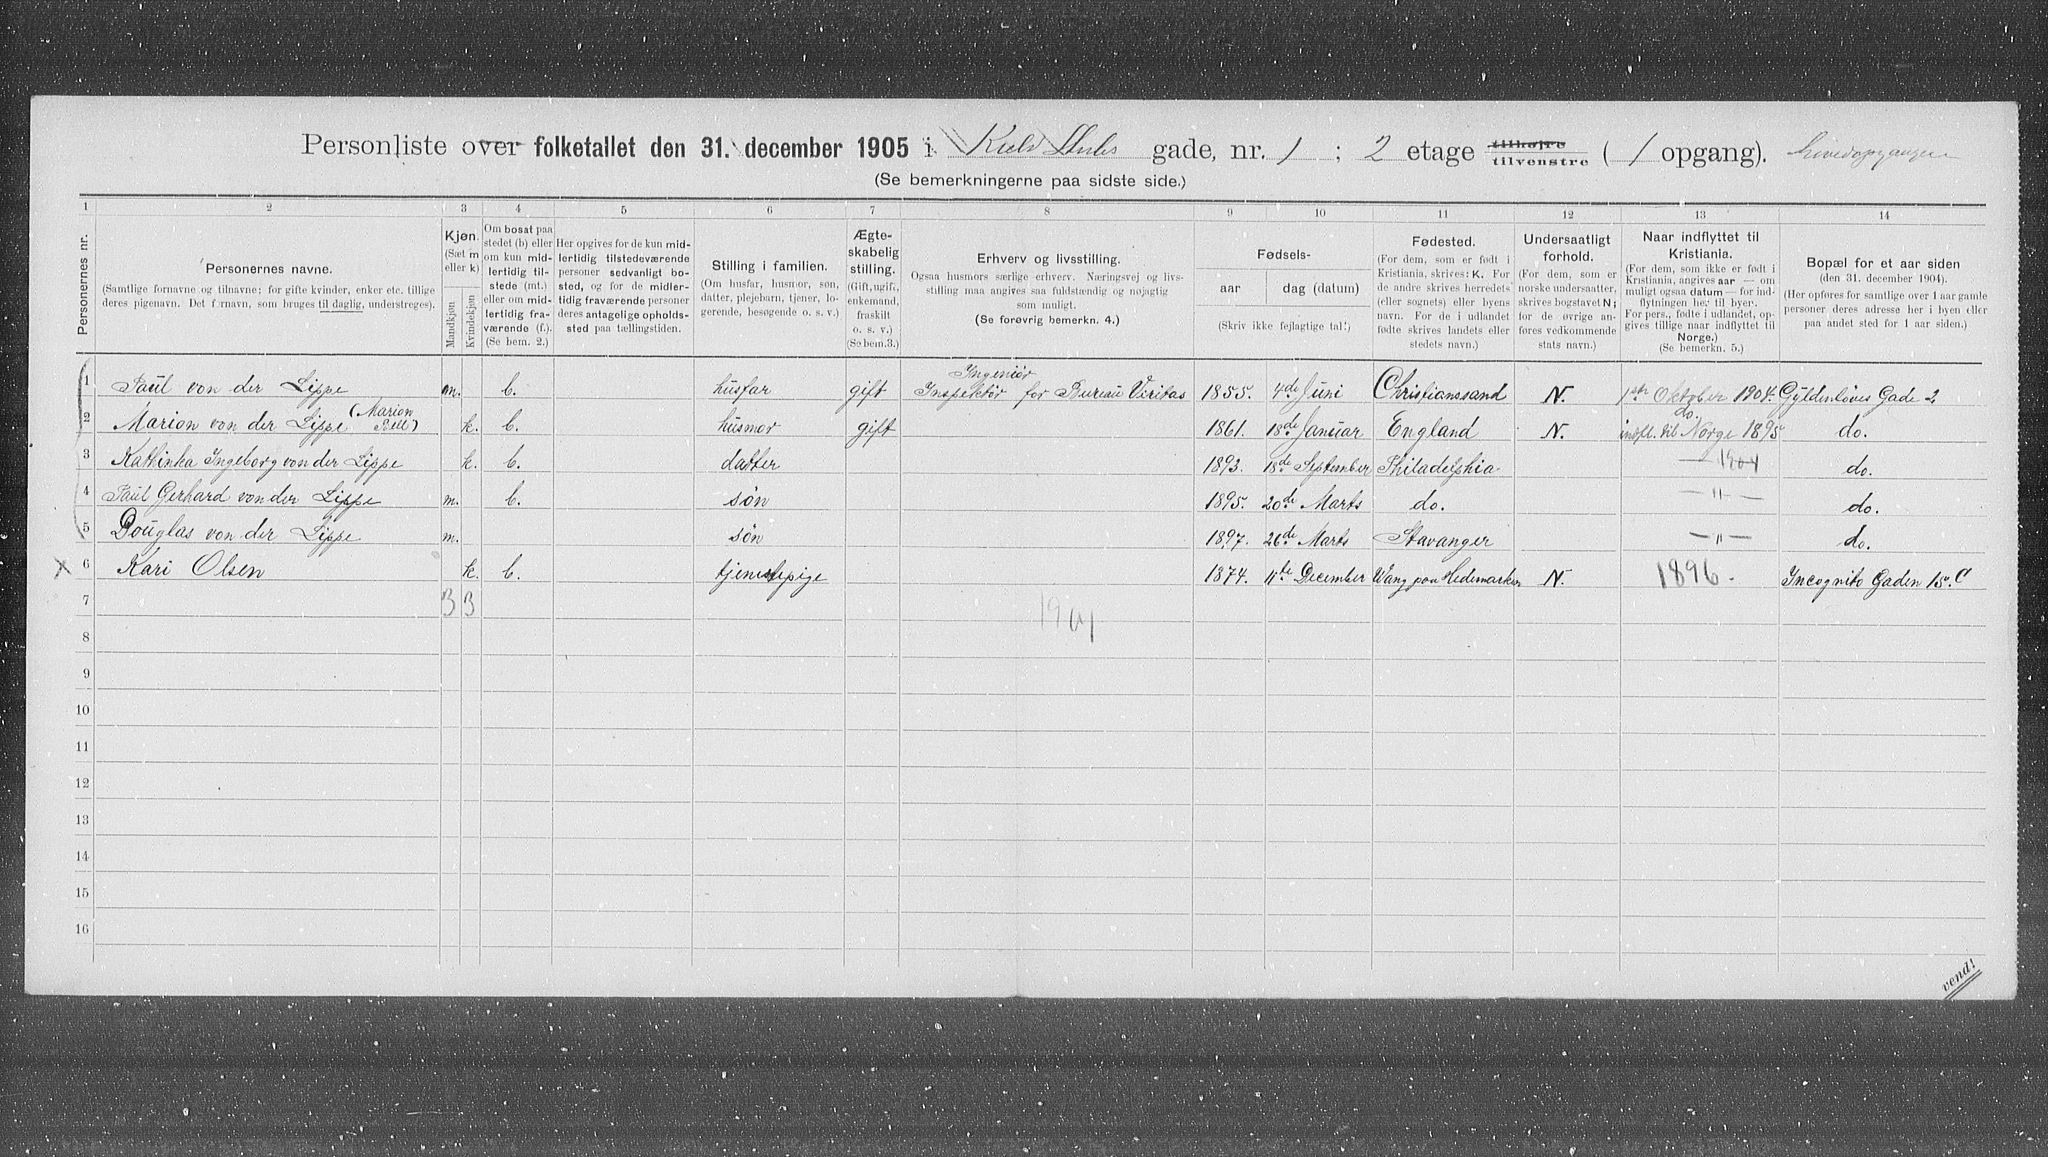 Personliste over folketallet den 31. december 1905 i Kield Stubs gade, nr. 1 ; 2 etage tilhøjre tilvenstre ( 1 opgang). hovedopgangen
(Se bemerkningerne paa sidste side.)
1 2 3 4 5 6 7 8 9 10 11 12 13 14
Personernes nr.
Personernes navne.
(Samtlige fornavne og tilnavne; for gifte kvinder, enker etc. tillige
deres pigenavn. Det fornavn, som bruges til daglig, understreges).
Kjøn.
(Sæt m
eller k)
Mandkjøn
Kvindekjøn
Om bosat paa
stedet (b) eller
om kun mid-
lertidig til-
stede (mt.)
eller om mid-
lertidig fra-
værende (f.).
(Se bem. 2.)
Her opgives for de kun mid-
lertidig tilstedeværende
personer sedvanligt bo-
sted, og for de midler-
tidig fraværende personer
deres antagelige opholds-
sted paa tællingstiden.
Stilling i familien.
(Om husfar, husmor, søn,
datter, plejebarn, tjener, lo-
gerende, besøgende o. s. v.)
Ægte-
skabelig
stilling.
(Gift, ugift,
enkemand,
fraskilt
o. s. v.)
(Se bem.3.)
Erhverv og livsstilling.
Ogsaa husmors særlige erhverv. Næringsvej og livs-
stilling maa angives saa fuldstændig og nøjagtig
som muligt.
(Se forøvrig bemerkn. 4.)
Fødsels-
aar dag (datum)
(Skriv ikke fejlagtige tal!)
Fødested.
(For dem, som er født i
Kristiania, skrives: K. For
de andre skrives herredets
(eller sognets) eller byens
navn. For de i udlandet
fødte skrives landets eller
stedets navn.)
Undersaatligt
forhold.
(For dem, som er
norske undersaatter,
skrives bogstavet N;
for de øvrige an-
føres vedkommende
stats navn.)
Naar indflyttet til
Kristiania.
(For dem, som ikke er født i
Kristiania, angives aar — om
muligt ogsaa datum — for ind-
flytningen her til byer.
For pers., fødte i udlandet, op-
gives tillige naar indflyttet til
Norge.)
(Se bemerkn. 5.)
Bopæl for et aar siden
(den 31. december 1904).
(Her opføres for samtlige over 1 aar gamle
personer deres adresse her i byen eller
paa andet sted for 1 aar siden.)
Ingeniør
1 Paul von der Lippe m. b. husfar gift Inspektør for Bureau Veritas 1855. 4de Juni Christianssand N. 1ste Oktober 1904. Gyldenløves Gade 2
(Marion do.
2 Marion von der Lippe k. b. husmor gift 1861. 18de Januar England N. indfl. til Norge 1895 do.
3 Kathinka Ingeborg von der Lippe k. b. datter 1893. 18de September Philadelphia — 1904 do.
4 Paul Gerhard von der Lippe m. b. søn 1895. 20de Marts do. — " — do.
5 Douglas von der Lippe m. søn 1897. 26de Marts Stavanger — " — do.
x 6 Kari Olsen k. b. tjenestepige 1874. 11te December Wang paa Hedemarken N. 1896. Incognito Gaden 15. C
7 3 3
1901
8
9
10
11
12
13
14
15
16
vend!